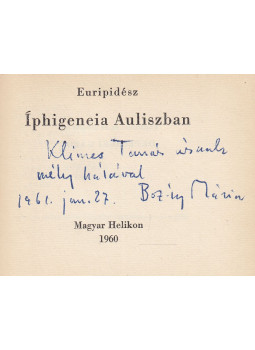 Euripidész
Íphigeneia Auliszban
Klimes Tamás úrnak
mély hálával
1961. jan. 27. Mária
Magyar Helikon
1960